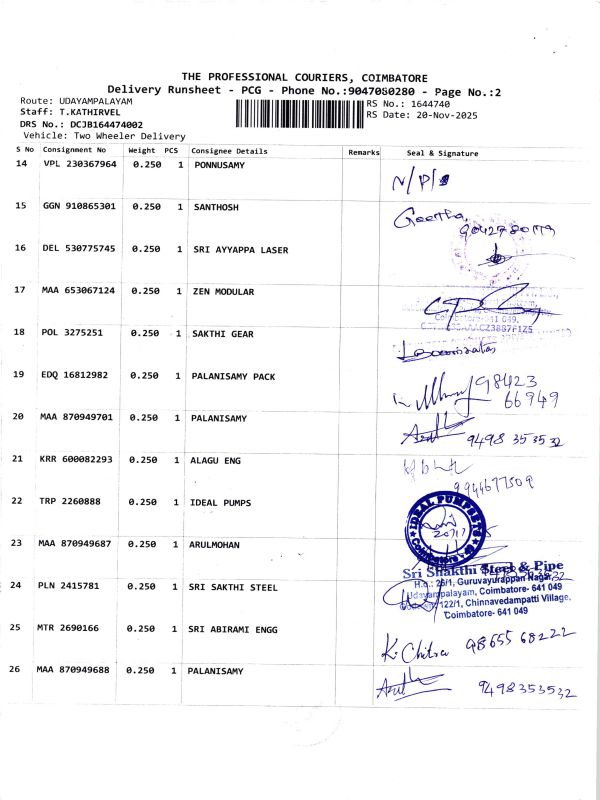 THE PROFESSIONAL COURIERS, COIMBATORE
Delivery Runsheet - PCG - Phone No.:9047080280 - Page No.:2
Route: UDAYAMPALAYAM
Staff: T.KATHIRVEL
DRS No.: DCJB164474002
Vehicle: Two Wheeler Delivery
RS No.: 1644740
RS Date: 20-Nov-2025
S No Consignment No Weight PCS Consignee Details Remarks Seal & Signature
14 VPL 230367964 0.250 1 PONNUSAMY N/P/
15 GGN 910865301 0.250 1 SANTHOSH Geetha
16 DEL 530775745 0.250 1 SRI AYYAPPA LASER
17 MAA 653067124 0.250 1 ZEN MODULAR
Coimbatore-641 049.
18 POL 3275251 0.250 1 SAKTHI GEAR
19 EDQ 16812982 0.250 1 PALANISAMY PACK 98423
66949
20 MAA 870949701 0.250 1 PALANISAMY 9498 353532
21 KRR 600082293 0.250 1 ALAGU ENG
9944677509
22 TRP 2260888 0.250 1 IDEAL PUMPS
IDEAL PUMPSETS
20/11
Coimbatore - 49
23 MAA 870949687 0.250 1 ARULMOHAN
Sri Shakthi Steel & Pipe
H.o.: 26/1, Guruvayurappan Nagar,
24 PLN 2415781 0.250 1 SRI SAKTHI STEEL
Udayampalayam, Coimbatore- 641 049
122/1, Chinnavedampatti Village,
Coimbatore- 641 049
25 MTR 2690166 0.250 1 SRI ABIRAMI ENGG K. Chitra 98655 68222
26 MAA 870949688 0.250 1 PALANISAMY 9498353532